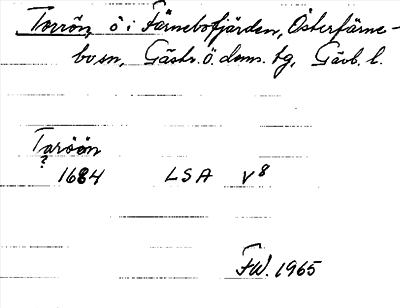 Torrön, ö i Färnebofjärden, Österfärne-
bo sn, Gästr. ö. dom. tg, Gävl. l.
Taröön
?
1684 LSA V8
FW. 1965